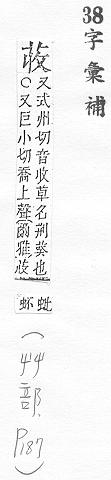 38字彙補
荍
又式州切音收草名荊葵也
○又巨小切喬上聲爾雅荍
蚍
衃
(艸部 P187)